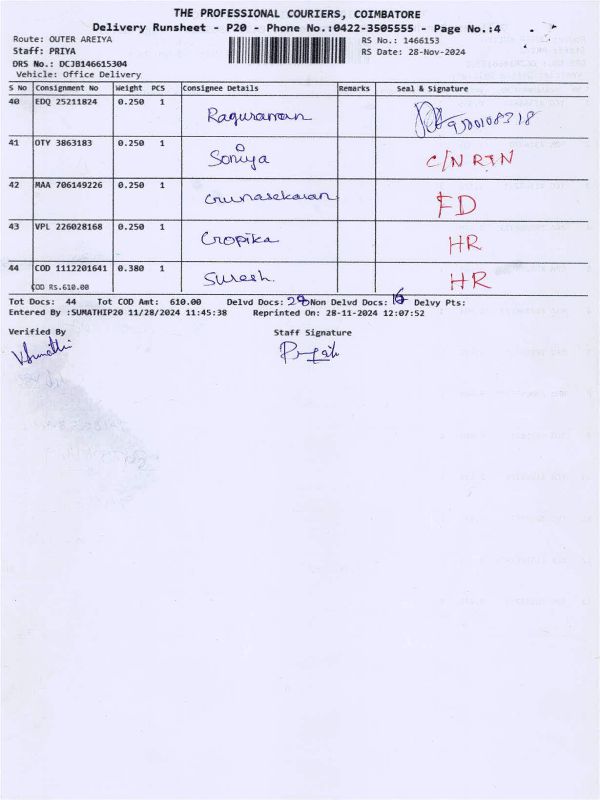 THE PROFESSIONAL COURIERS, COIMBATORE
Delivery Runsheet - P20 - Phone No.:0422-3505555 - Page No.:4
Route: OUTER AREIYA RS No.: 1466153
Staff: PRIYA RS Date: 28-Nov-2024
DRS No.: DCJB146615304
Vehicle: Office Delivery
S No Consignment No Weight PCS Consignee Details Remarks Seal & Signature
40 EDQ 25211824 0.250 1 Raguraman
41 OTY 3863183 0.250 1 Soniya C/N RTN
42 MAA 706149226 0.250 1 Gunasekaran FD
43 VPL 226028168 0.250 1 Gopika HR
44 COD 1112201641 0.380 1 Suresh. HR
COD Rs.610.00
Tot Docs: 44 Tot COD Amt: 610.00 Delvd Docs: 28 Non Delvd Docs: 16 Delvy Pts:
Entered By :SUMATHIP20 11/28/2024 11:45:38 Reprinted On: 28-11-2024 12:07:52
Verified By Staff Signature
VSumathi